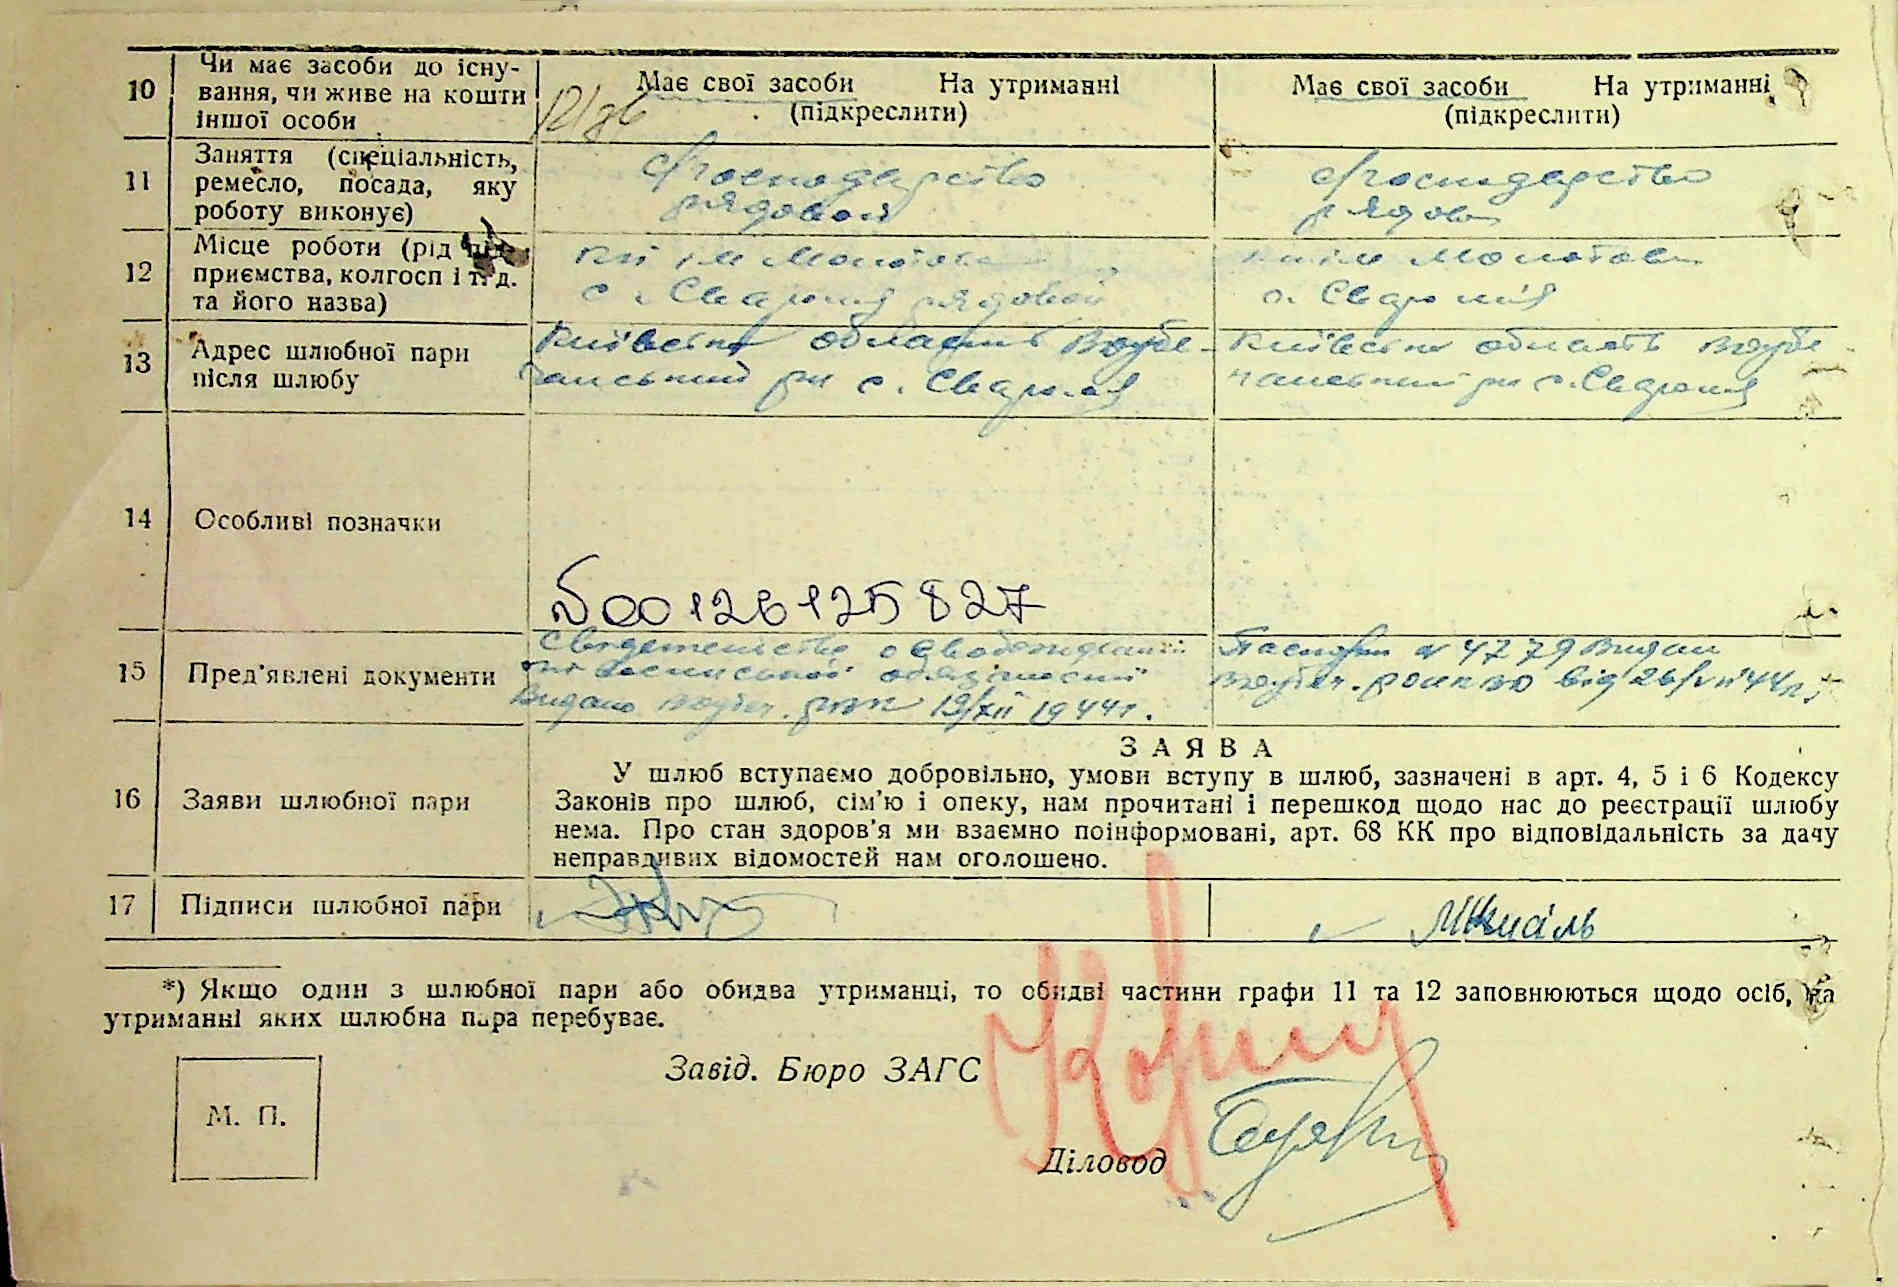 10
Чи має засоби до існу-
вання, чи живе на кошти
іншої особи
Має свої засоби На утриманні
(підкреслити)
Має свої засоби На утриманні
(підкреслити)
11
Заняття (спеціальність,
ремесло, посада, яку
роботу виконує)
господарство
рядовой
господарство
рядов
12
Місце роботи (рід під-
приємства, колгосп і т. д.
та його назва)
ім Молотова
с. Сваромя рядовой
ім Молотова
с. Сваромя
13
Адрес шлюбної пари
після шлюбу
Київська область
рн с. Сваромя
Київська область
рн с. Сваромя
14
Особливі позначки
00126125827
15
Пред'явлені документи
Видано 19/XII 1944г.
Паспорт № 4779 Видан
від 26/VII 44
16
Заяви шлюбної пари
ЗАЯВА
У шлюб вступаємо добровільно, умови вступу в шлюб, зазначені в арт. 4, 5 і 6 Кодексу
Законів про шлюб, сім'ю і опеку, нам прочитані і перешкод щодо нас до реєстрації шлюбу
нема. Про стан здоров'я ми взаємно поінформовані, арт. 68 КК про відповідальність за дачу
неправдивих відомостей нам оголошено.
17
Підписи шлюбної пари
*) Якщо один з шлюбної пари або обидва утриманці, то обидві частини графи 11 та 12 заповнюються щодо осіб, на
утриманні яких шлюбна пара перебуває.
Завід. Бюро ЗАГС
М. П.
Діловод